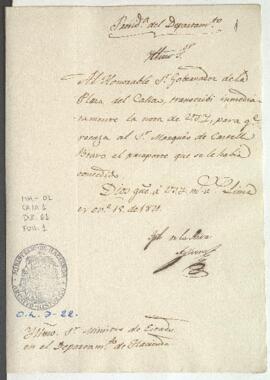 Presid.ª del Departam.to
Iltmo S.r
Al Honorable S.r Gobernador de la
Plaza del Callao, transcribí inmedia-
tamente la nota de V.S.I. para q.e
recoja al S.r Marqués de Castell
Bravo el pasaporte que se le había
concedido.
Dios gue. á V.S.I. m.s a.s Lima
en.o 18. de 1821.
José de la Riva
Agüero
MH-OL
CAJA 1
DOC 61
FOL. 1
O.L. 7-22.
Iltmo. S.r Ministro de Estado
en el Departam.to de Hacienda